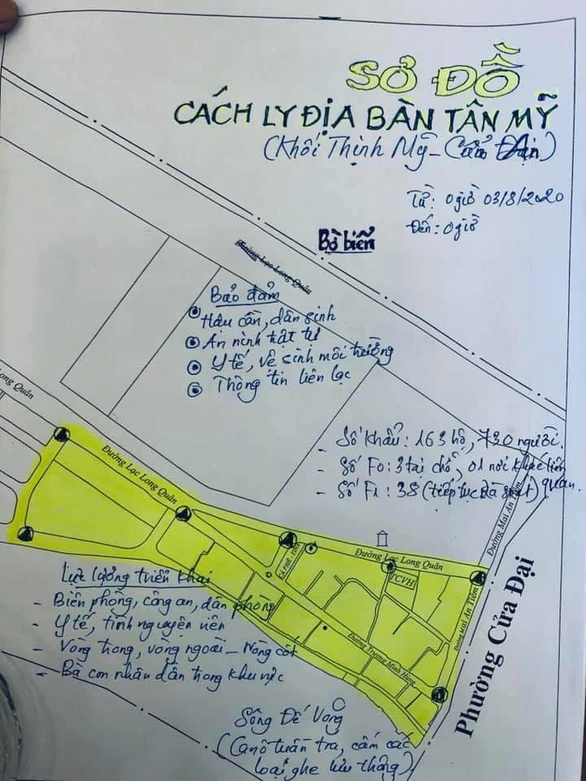 SƠ ĐỒ
CÁCH LY ĐỊA BÀN TÂN MỸ
(Khối Thịnh Mỹ - Cửa Đại)
Từ: 0 giờ 03/8/2020
Đến: 0 giờ
Bờ biển
Đường Lạc Long Quân
Bảo đảm
Hậu cần, dân sinh
An ninh trật tự
Y tế, vệ sinh môi trường
Thông tin liên lạc
Long Quân
- Số khẩu: 163 hộ, 730 người.
- Số F0: 3 tại chỗ, 01 nơi khác liên quan.
- Số F1: 38 (tiếp tục rà soát)
Đường Lạc Long Quân
Đường Lạc Long Quân
TCVH
Đường Mai An Tiêm
Đường Mai An Tiêm
Đường Trương Minh Hùng
Phường Cửa Đại
Lực lượng triển khai
- Biên phòng, công an, dân phòng
- Y tế, tình nguyện viên
- Vòng trong, vòng ngoài - Nòng cốt
- Bà con nhân dân trong khu vực
Sông Đế Võng
(Ca nô tuần tra, cấm các
loại ghe lưu thông)